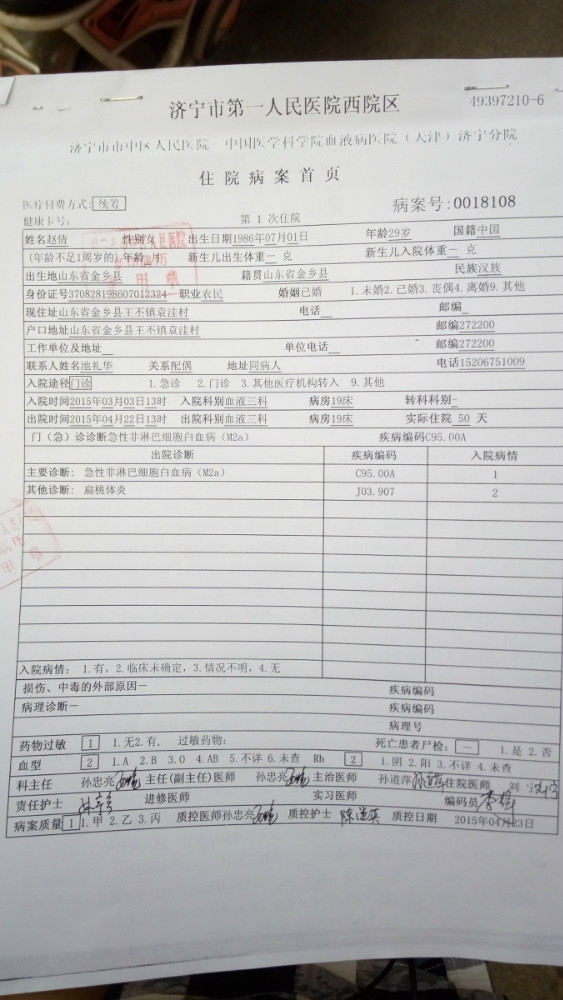 济宁市第一人民医院西院区 49397210-6
济宁市市中区人民医院 中国医学科学院血液病医院（天津）济宁分院
住院病案首页
医疗付费方式: 统筹 病案号:0018108
健康卡号: 第 1 次住院
姓名赵倩 性别女 出生日期1986年07月01日 年龄29岁 国籍中国
(年龄不足1周岁的) 年龄 月 新生儿出生体重— 克 新生儿入院体重— 克
出生地山东省金乡县 籍贯山东省金乡县 民族汉族
身份证号370828198607012324 职业农民 婚姻已婚 1.未婚2.已婚3.丧偶4.离婚9.其他
现住址山东省金乡县王丕镇袁洼村 电话 邮编
户口地址山东省金乡县王丕镇袁洼村 邮编272200
工作单位及地址 单位电话 邮编272200
联系人姓名池礼华 关系配偶 地址同病人 电话15206751009
入院途径门诊 1.急诊 2.门诊 3.其他医疗机构转入 9.其他
入院时间2015年03月03日13时 入院科别血液三科 病房19床 转科科别-
出院时间2015年04月22日13时 出院科别血液三科 病房19床 实际住院 50 天
门（急）诊诊断急性非淋巴细胞白血病（M2a） 疾病编码C95.00A
出院诊断 疾病编码 入院病情
主要诊断: 急性非淋巴细胞白血病（M2a） C95.00A 1
其他诊断: 扁桃体炎 J03.907 2
入院病情: 1.有, 2.临床未确定, 3.情况不明, 4.无
损伤、中毒的外部原因— 疾病编码
病理诊断— 疾病编码
病理号
药物过敏 1 1.无2.有, 过敏药物: 死亡患者尸检: — 1.是 2.否
血型 2 1.A 2.B 3.O 4.AB 5.不详 6.未查 Rh 2 1.阴 2.阳 3.不详 4.未查
科主任 孙忠亮 主任(副主任)医师 孙忠亮 主治医师 孙道萍 住院医师 刘
责任护士 进修医师 实习医师 编码员
病案质量 1 1.甲 2.乙 3.丙 质控医师孙忠亮 质控护士 质控日期 2015年04月23日